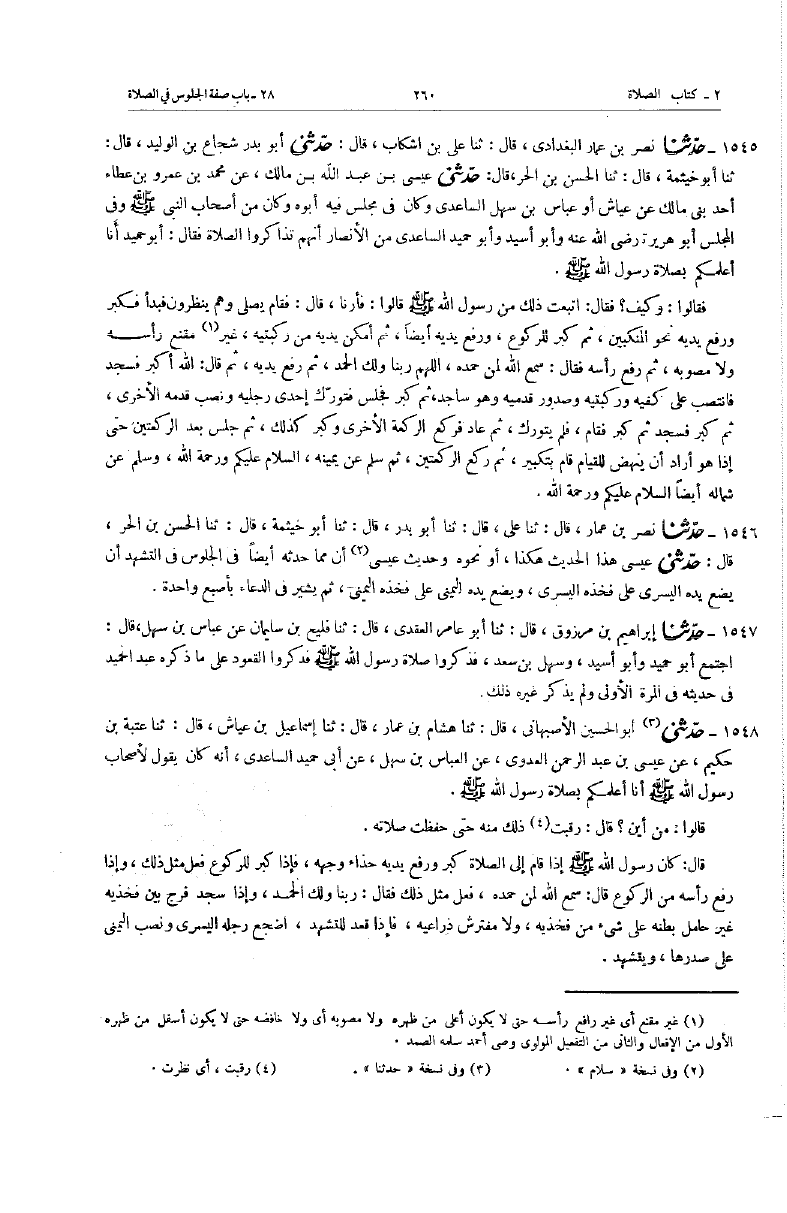 ٢ ـ كتاب الصلاة ٢٦٠ ٢٨ ـ باب صفة الجلوس فى الصلاة
١٥٤٥ ـ حدّثنا نصر بن عمار البغدادى ، قال : ثنا على بن اشكاب ، قال : حدّثنى أبو بدر شجاع بن الوليد ، قال :
ثنا أبو خيثمة ، قال : ثنا الحسن بن الحر،قال: حدّثنى عيسى بن عبد الله بن مالك ، عن محمد بن عمرو بن عطاء
أحد بنى مالك عن عياش أو عباس بن سهل الساعدى وكان فى مجلس فيه أبوه وكان من أصحاب النبى ﷺ وفى
المجلس أبو هريرة رضى الله عنه وأبو أسيد وأبو حميد الساعدى من الأنصار أنهم تذاكروا الصلاة فقال : أبو حميد أنا
أعلمكم بصلاة رسول الله ﷺ .
فقالوا : وكيف؟ فقال: اتبعت ذلك من رسول الله ﷺ قالوا : فأرنا ، قال : فقام يصلى وهم ينظرون فبدأ فكبر
ورفع يديه نحو المنكبين ، ثم كبر للركوع ، ورفع يديه أيضاً ، ثم أمكن يديه من ركبتيه ، غير(١) مقنع رأسه
ولا مصوبه ، ثم رفع رأسه فقال : سمع الله لمن حمده ، اللهم ربنا ولك الحمد ، ثم رفع يديه ، ثم قال: الله أكبر فسجد
فانتصب على كفيه وركبتيه وصدور قدميه وهو ساجد،ثم كبر فجلس فتورّك إحدى رجليه ونصب قدمه الأخرى ،
ثم كبر فسجد ثم كبر فقام ، فلم يتورك ، ثم عاد فركع الركعة الأخرى وكبر كذلك ، ثم جلس بعد الركعتين حتى
إذا هو أراد أن ينهض للقيام قام بتكبير ، ثم ركع الركعتين ، ثم سلم عن يمينه ، السلام عليكم ورحمة الله ، وسلم عن
شماله أيضاً السلام عليكم ورحمة الله .
١٥٤٦ ـ حدّثنا نصر بن عمار ، قال : ثنا على ، قال : ثنا أبو بدر ، قال : ثنا أبو خيثمة ، قال : ثنا الحسن بن الحر ،
قال : حدّثنى عيسى هذا الحديث هكذا ، أو نحوه وحديث عيسى(٢) أن مما حدثه أيضاً فى الجلوس فى التشهد أن
يضع يده اليسرى على فخذه اليسرى ، ويضع يده اليمنى على فخذه اليمنى ، ثم يشير فى الدعاء بأصبع واحدة .
١٥٤٧ ـ حدّثنا إبراهيم بن مرزوق ، قال : ثنا أبو عامر العقدى ، قال : ثنا فليح بن سليمان عن عباس بن سهل،قال :
اجتمع أبو حميد وأبو أسيد ، وسهل بن سعد ، فذكروا صلاة رسول الله ﷺ فذكروا القعود على ما ذكره عبد الحميد
فى حديثه فى المرة الأولى ولم يذكر غيره ذلك .
١٥٤٨ ـ حدّثنى(٣) أبو الحسين الأصبهانى ، قال : ثنا هشام بن عمار ، قال : ثنا إسماعيل بن عياش ، قال : ثنا عتبة بن
حكيم ، عن عيسى بن عبد الرحمن العدوى ، عن العباس بن سهل ، عن أبى حميد الساعدى ، أنه كان يقول لأصحاب
رسول الله ﷺ أنا أعلمكم بصلاة رسول الله ﷺ .
قالوا : من أين ؟ قال : رقبت(٤) ذلك منه حتى حفظت صلاته .
قال: كان رسول الله ﷺ إذا قام إلى الصلاة كبر ورفع يديه حذاء وجهه ، فإذا كبر للركوع فعل مثل ذلك ، وإذا
رفع رأسه من الركوع قال: سمع الله لمن حمده ، فعل مثل ذلك فقال : ربنا ولك الحمد ، وإذا سجد فرج بين فخذيه
غير حامل بطنه على شىء من فخذيه ، ولا مفترش ذراعيه ، فإذا قعد للتشهد ، اضجع رجله اليسرى ونصب اليمنى
على صدرها ، ويتشهد .
(١) غير مقنع أى غير رافع رأسه حتى لا يكون أعلى من ظهره ولا مصوبه أى ولا خافضه حتى لا يكون أسفل من ظهره
الأول من الإفعال والثانى من التفعيل المولوى وصى أحمد سلمه الصمد .
(٢) وفى نسخة « سلام » . (٣) وفى نسخة « حدثنا » . (٤) رقبت ، أى نظرت .